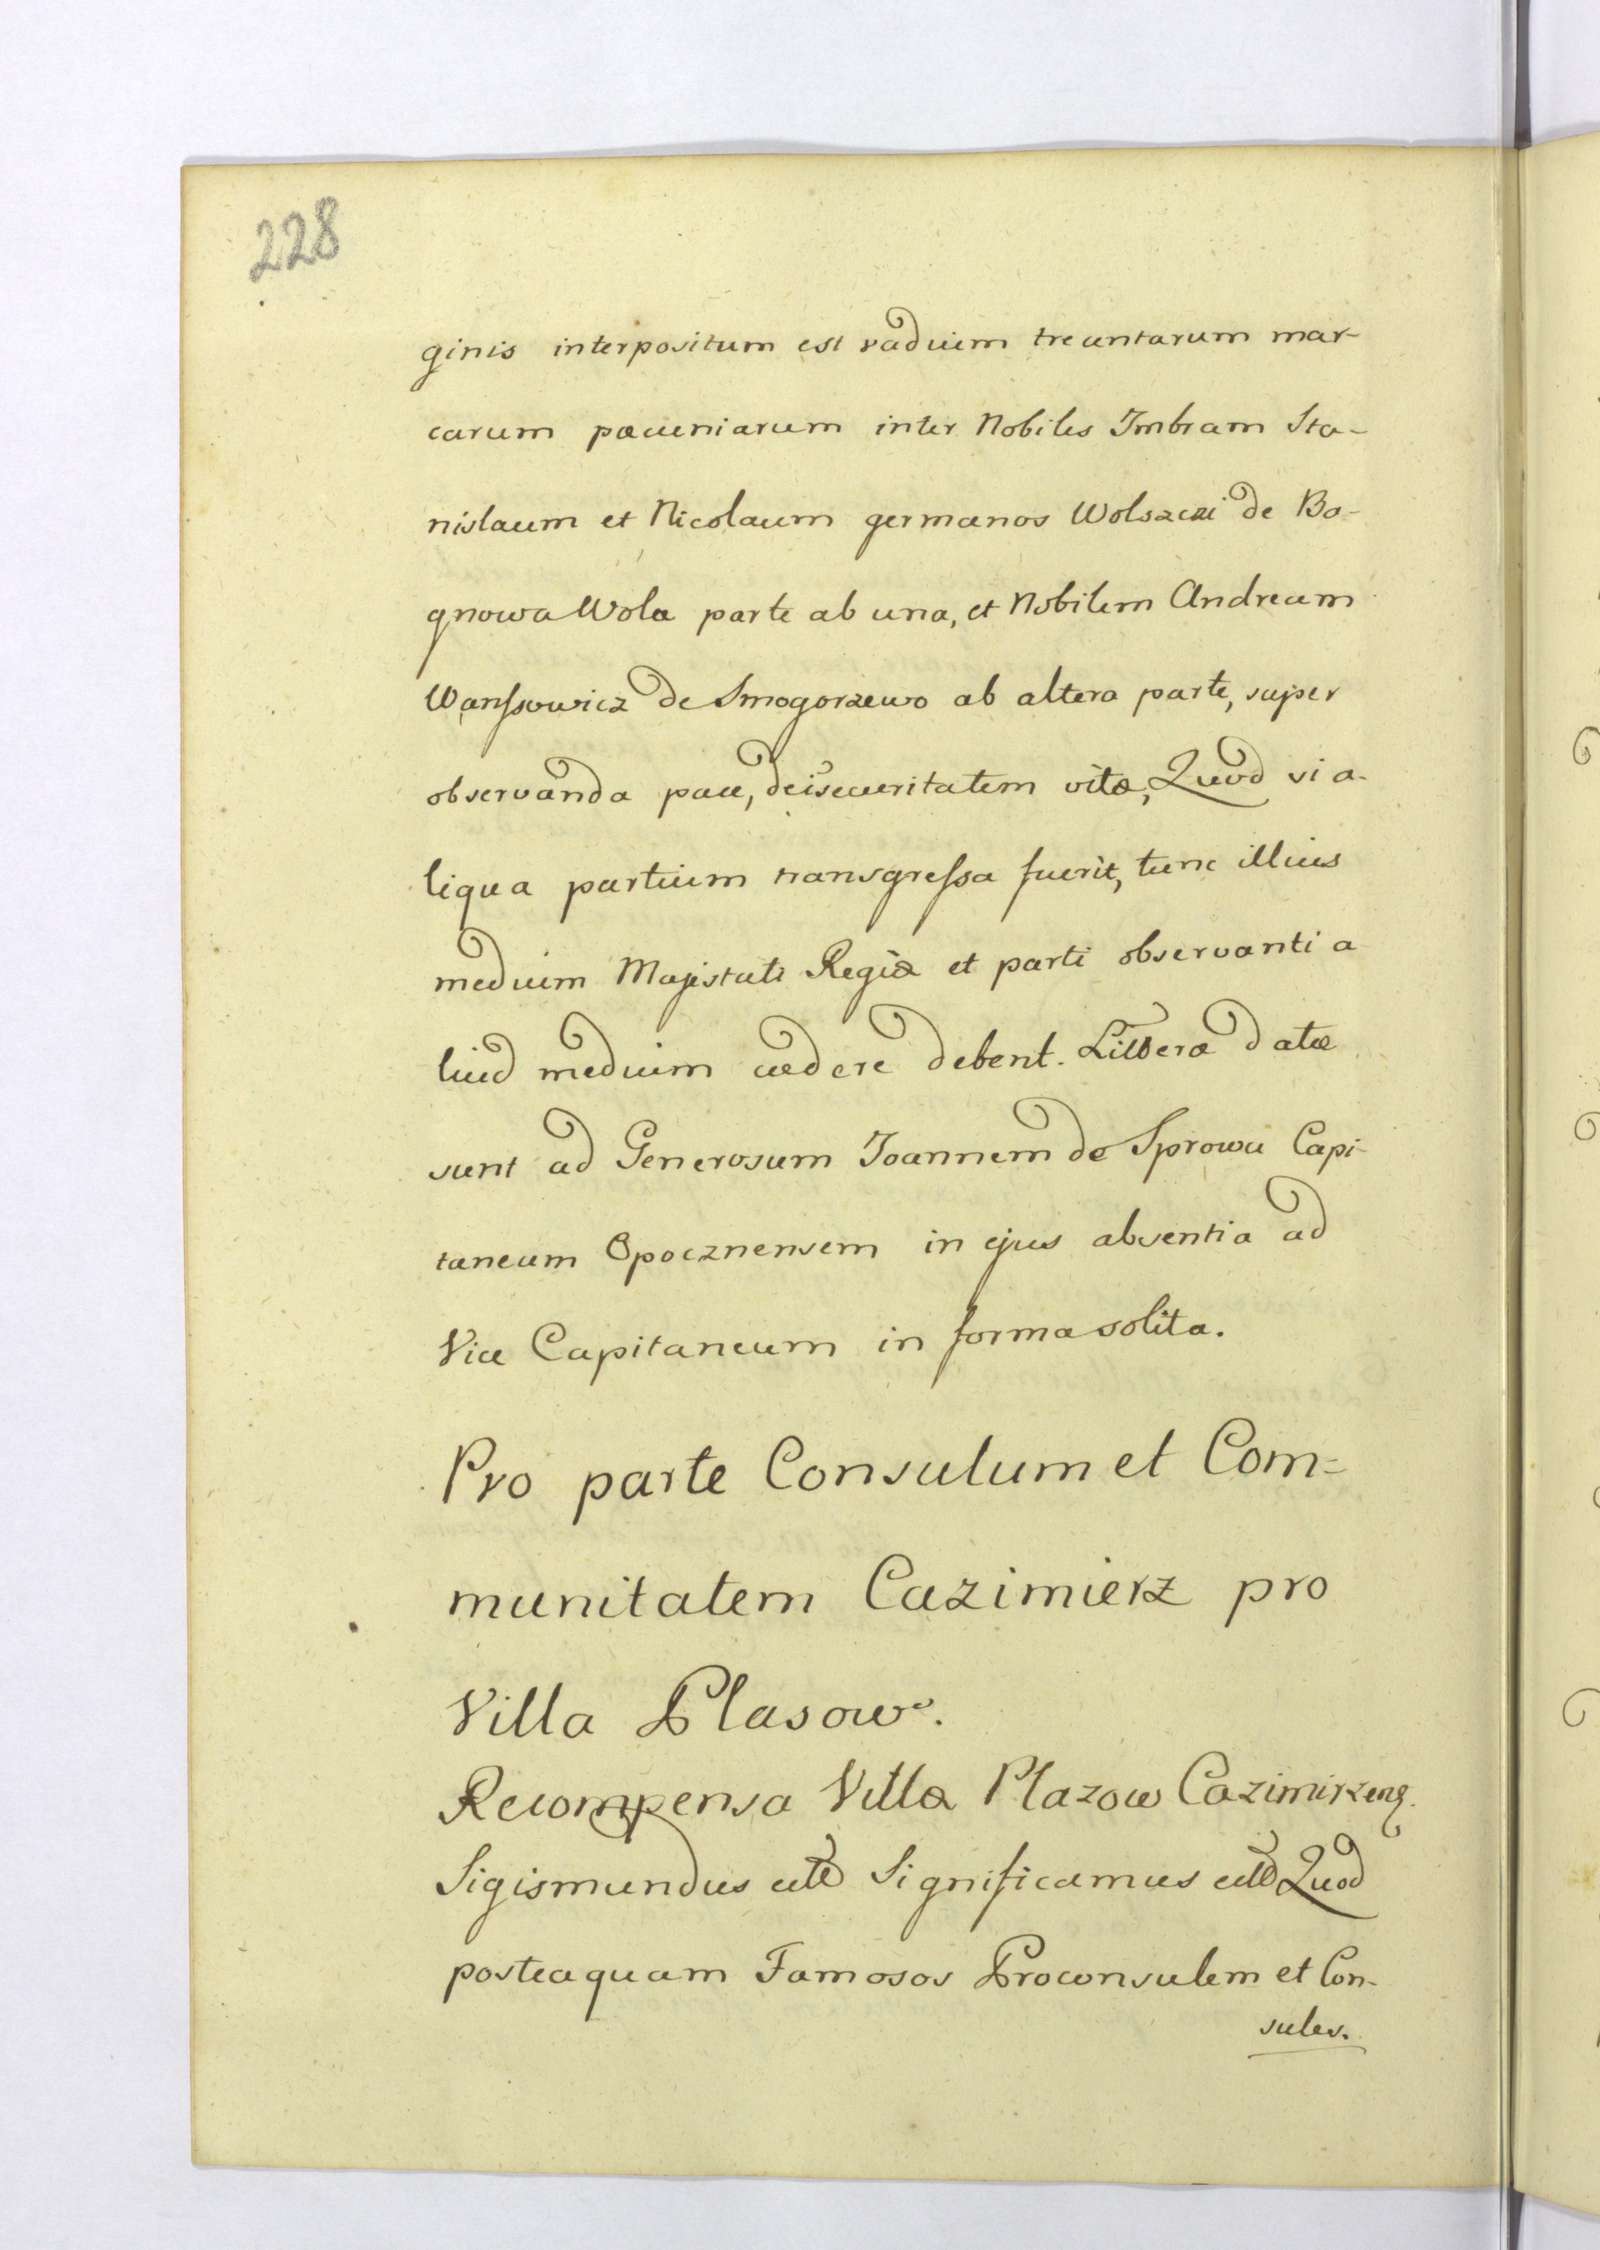 228
ginis interpositum est vadium trecentarum mar-
carum pæcuniarum inter Nobiles Imbram Sta-
nislaum et Nicolaum germanos Wolszczi de Bo-
gnowa Wola parte ab una, et Nobilem Andream
Wanssowicz de Smogorzewo ab altera parte, super
observanda pace, securitatem vitæ, Quod si a-
liqua partium transgressa fuerit, tunc illius
medium Majestati Regiæ et parti observanti a
liud medium cædere debent. Litteræ datæ
sunt ad Generosum Joannem de Sprowa Capi-
taneum Opocznensem in ejus absentia ad
Vice Capitaneum in forma solita.
Pro parte Consulum et Com=
munitatem Cazimierz pro
Villa Plasow.
Recompensa Villæ Plazow Cazimirzens.
Sigismundus etc Significamus etc Quod
posteaquam Famosos Proconsulem et Con-
sules.